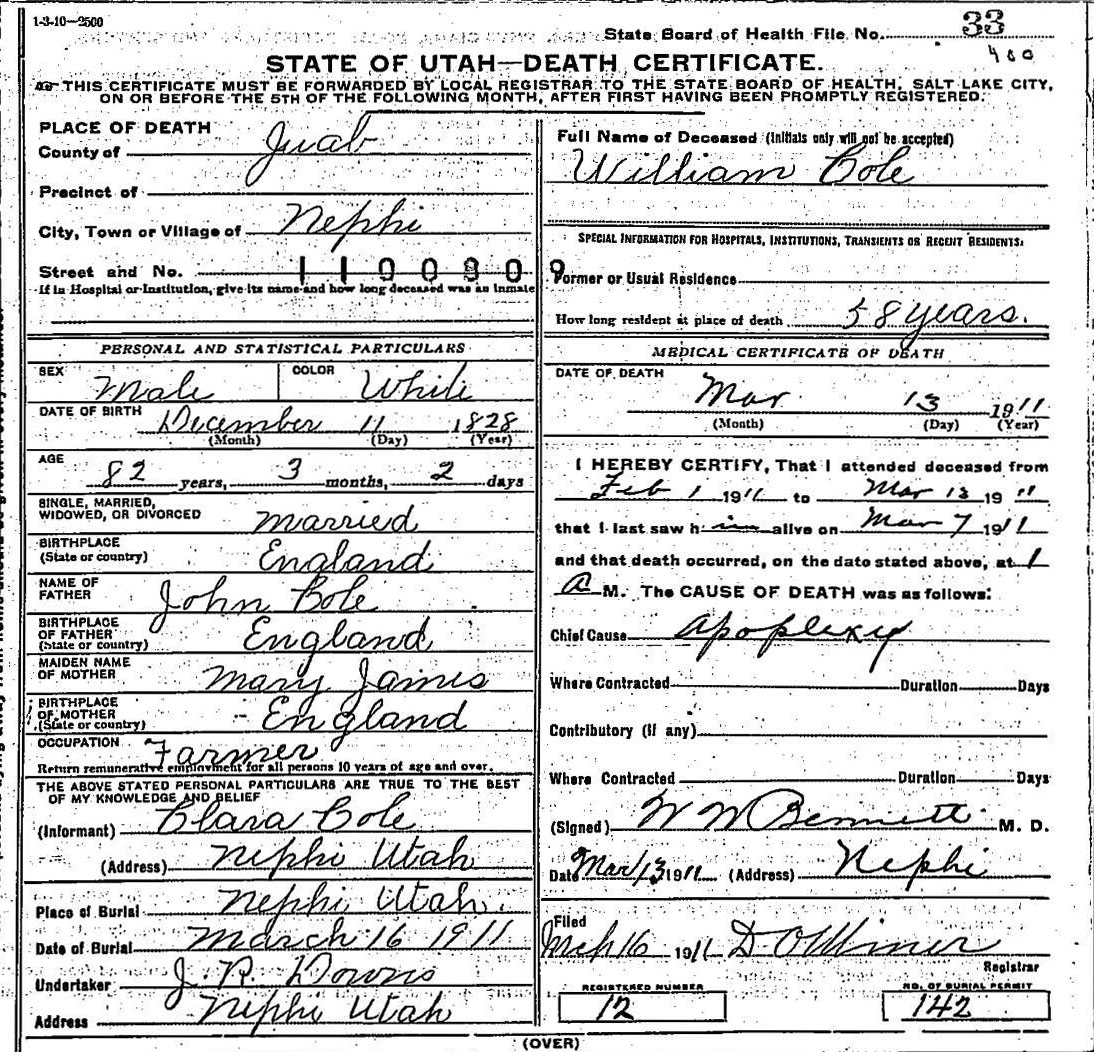 1-3-10-2500
State Board of Health File No. 33
400
STATE OF UTAH—DEATH CERTIFICATE.
THIS CERTIFICATE MUST BE FORWARDED BY LOCAL REGISTRAR TO THE STATE BOARD OF HEALTH, SALT LAKE CITY,
ON OR BEFORE THE 5TH OF THE FOLLOWING MONTH, AFTER FIRST HAVING BEEN PROMPTLY REGISTERED.
PLACE OF DEATH
County of Juab
Precinct of
City, Town or Village of Nephi
Street and No. 1100809
If in Hospital or Institution, give its name and how long deceased was an inmate
PERSONAL AND STATISTICAL PARTICULARS
SEX Male COLOR White
DATE OF BIRTH December 11 1828
(Month) (Day) (Year)
AGE 82 years, 3 months, 2 days
SINGLE, MARRIED,
WIDOWED, OR DIVORCED married
BIRTHPLACE
(State or country) England
NAME OF
FATHER John Cole
BIRTHPLACE
OF FATHER
(State or country) England
MAIDEN NAME
OF MOTHER Mary James
BIRTHPLACE
OF MOTHER
(State or country) England
OCCUPATION Farmer
Return remunerative employment for all persons 10 years of age and over.
THE ABOVE STATED PERSONAL PARTICULARS ARE TRUE TO THE BEST
OF MY KNOWLEDGE AND BELIEF
(Informant) Clara Cole
(Address) Nephi Utah
Place of Burial Nephi Utah.
Date of Burial March 16 1911
Undertaker J. R. Downs
Address Nephi Utah
Full Name of Deceased (Initials only will not be accepted)
William Cole
SPECIAL INFORMATION FOR HOSPITALS, INSTITUTIONS, TRANSIENTS OR RECENT RESIDENTS:
Former or Usual Residence
How long resident at place of death 58 years.
MEDICAL CERTIFICATE OF DEATH
DATE OF DEATH
Mar 13 1911
(Month) (Day) (Year)
I HEREBY CERTIFY, That I attended deceased from
Feb 1 1911 to Mar 13 1911
that I last saw h im alive on Mar 7 1911
and that death occurred, on the date stated above, at 1
A M. The CAUSE OF DEATH was as follows:
Chief Cause Apoplexy
Where Contracted Duration Days
Contributory (if any)
Where Contracted Duration Days
(Signed) W W Bennett M. D.
Date Mar 13 1911 (Address) Nephi
Filed
Mch 16 1911 D O Miner
Registrar
REGISTERED NUMBER
12
NO. OF BURIAL PERMIT
142
(OVER)